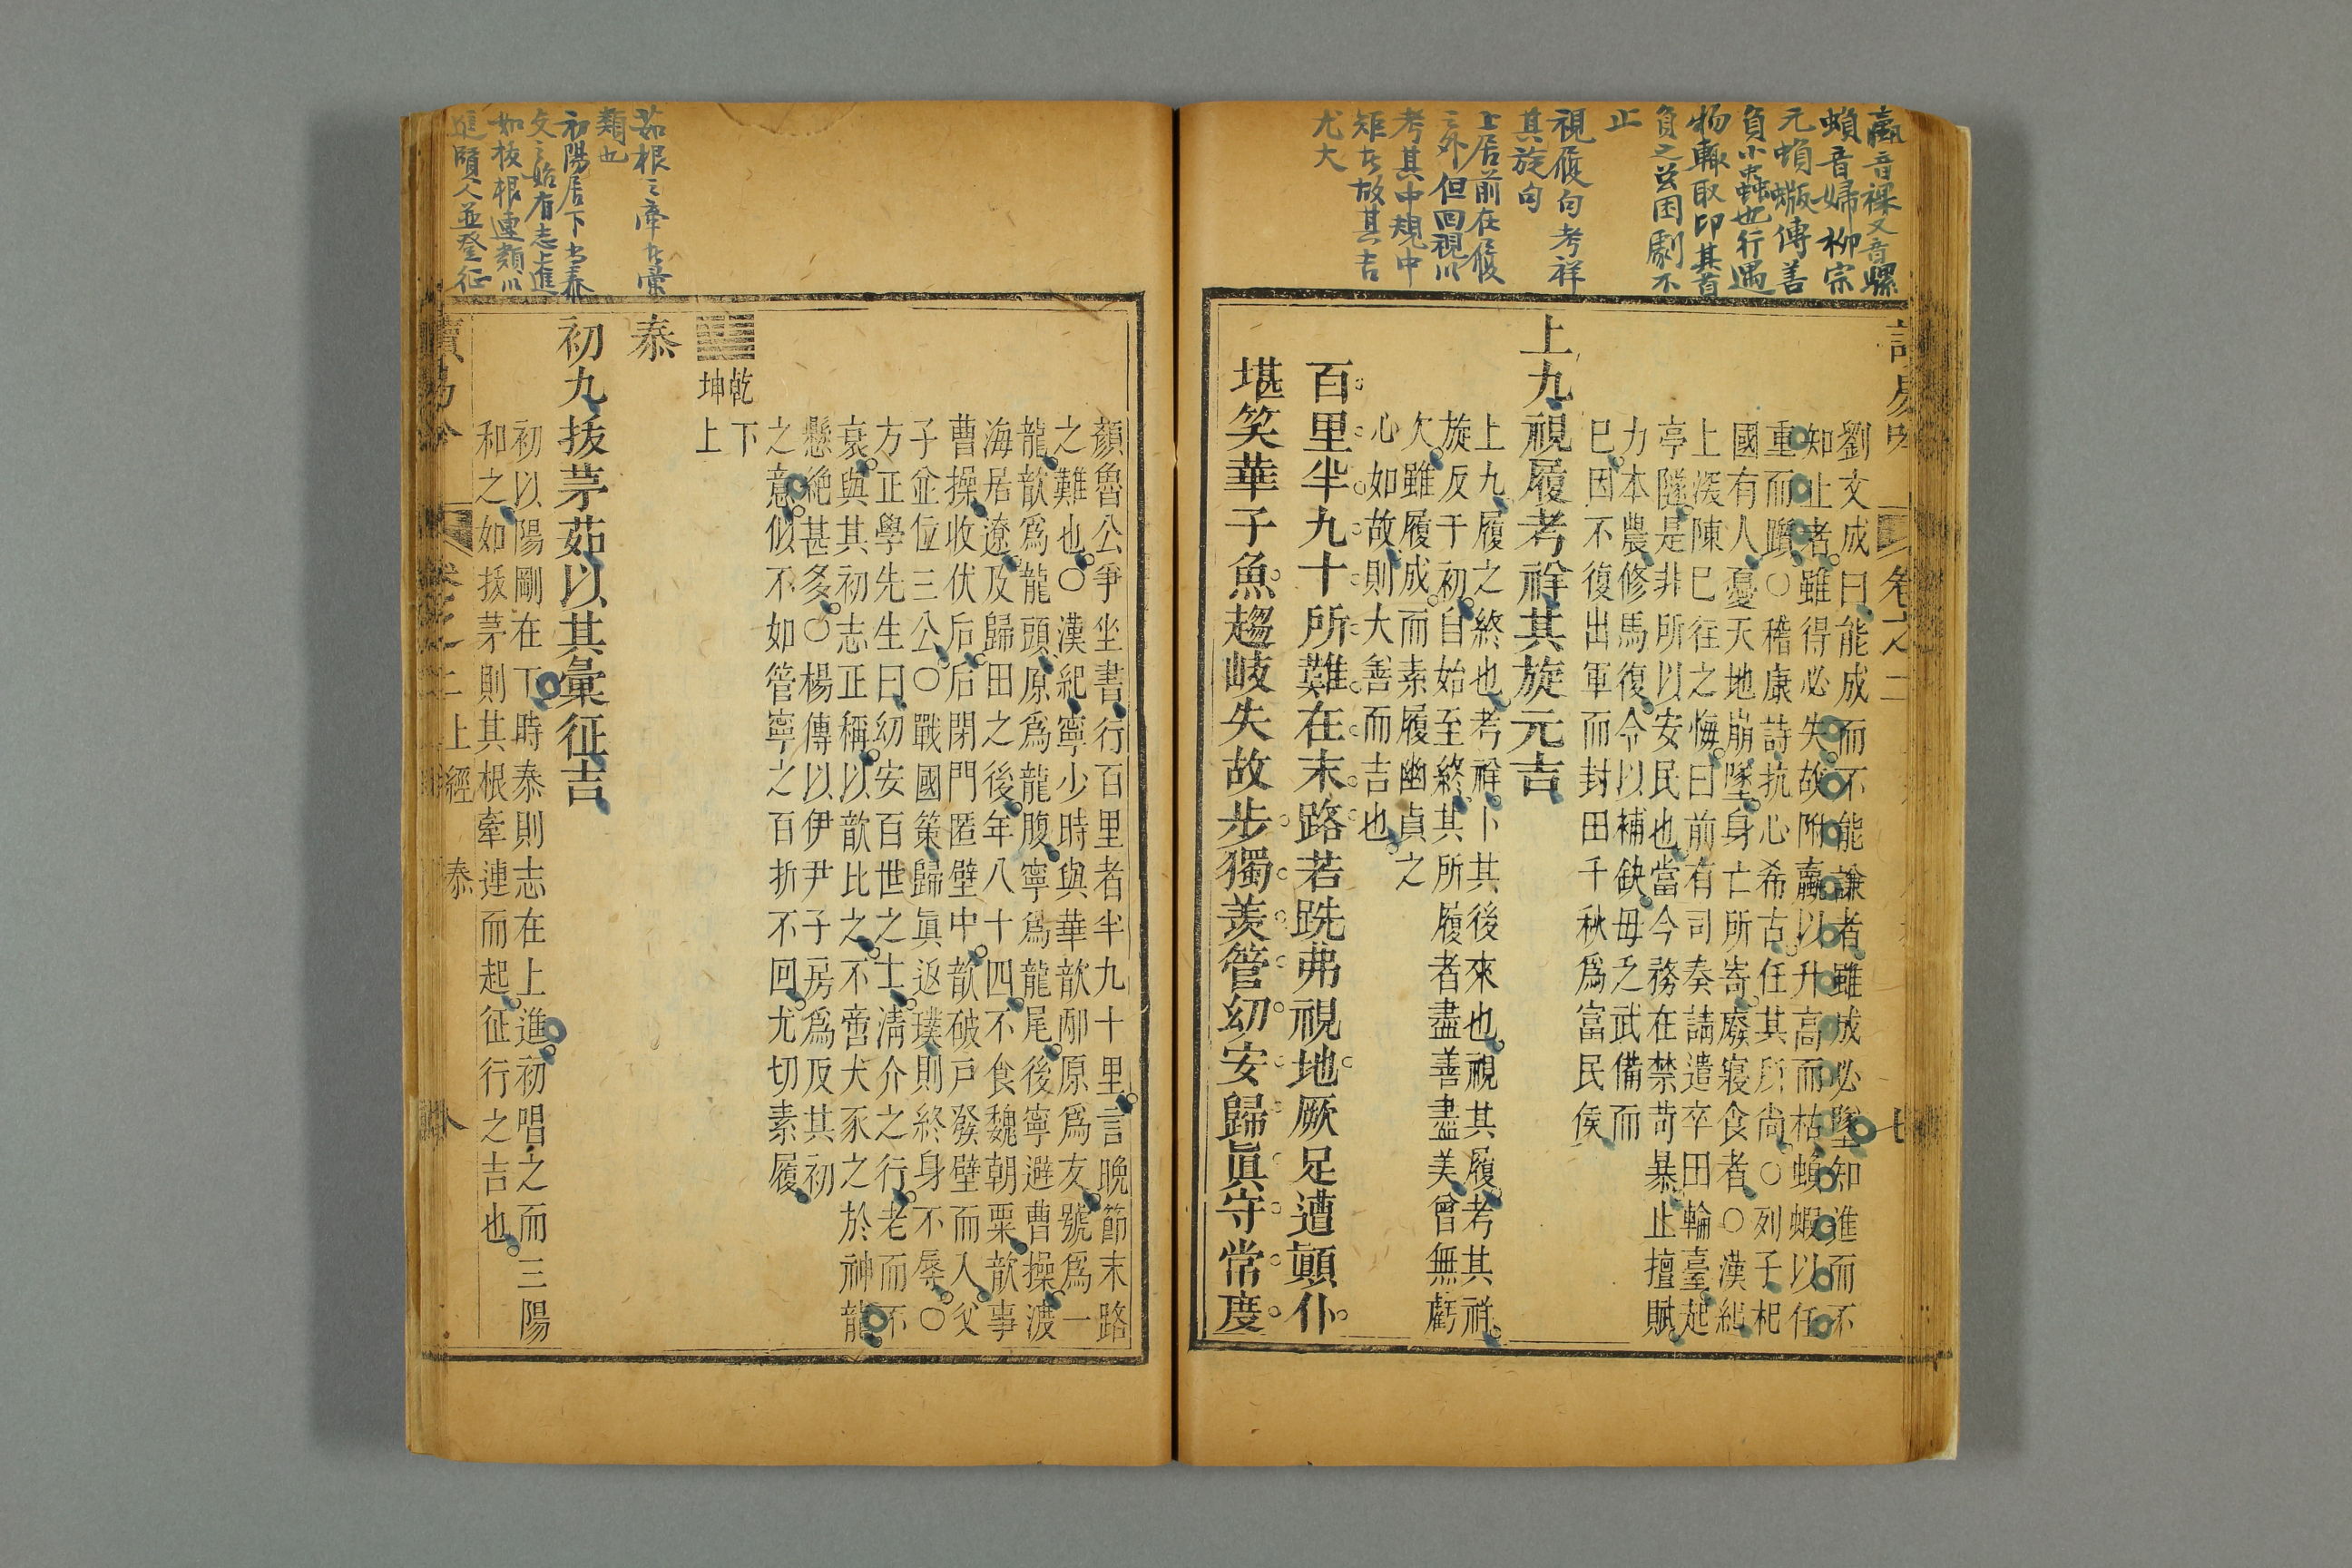 蠃音裸又音螺
蝜音婦柳宗
元蝜蝂傳善
負小蟲也行遇
物輒取卬其首
負之益困劇不
止
視履句考祥
其旋句
上居前在後
之外但回視以
考其中規中
矩者故其吉
尤大
卷之二
劉文成曰能成而不能謙者雖成必墜知進而不
知止者雖得必失故附蠃以升高而枯蝜蝂以任
重而躓○稽康詩抗心希古任其所尚○列子杞
國有人憂天地崩墜身亡所寄廢寢食者○漢紀
上深陳巳往之悔曰前有司奏請遣卒田輪臺起
亭隧是非所以安民也當今務在禁苛暴止擅賦
力本農修馬復令以補缺毋乏武備而
巳因不復出軍而封田千秋爲富民侯
上九視履考祥其旋元吉
上九履之終也考祥卜其後來也視其履考其祥
旋反于初自始至終其所履者盡善盡美曾無虧
欠雖履成而素履幽貞之
心如故則大善而吉也
百里半九十所難在末路若跣弗視地厥足遭顛仆
堪笑華子魚趨岐失故步獨羨管幼安歸眞守常度
茹根之牽者彙
類也
初陽居下當泰
交之始有志上進
如拔根連類以
進賢人並登征
顏魯公爭坐書行百里者半九十里言晚節末路
之難也○漢紀寧少時與華歆邴原爲友號爲一
龍歆爲龍頭原爲龍腹寧爲龍尾後寧避曹操渡
海居遼及歸田之後年八十四不食魏朝粟歆事
曹操收伏后后閉門匿壁中歆破戸發壁而入父
子並位三公○戰國策歸眞返璞則終身不辱○
方正學先生曰幼安百世之士淸介之行老而不
衰與其初志正稱以歆比之不啻犬豕之於神龍
懸絶甚多○楊傳以伊尹子房爲反其初
之意似不如管寧之百折不回尤切素履
乾下
坤上
泰
初九拔茅茹以其彙征吉
初以陽剛在下時泰則志在上進初唱之而三陽
和之如拔茅則其根牽連而起征行之吉也
上經 泰